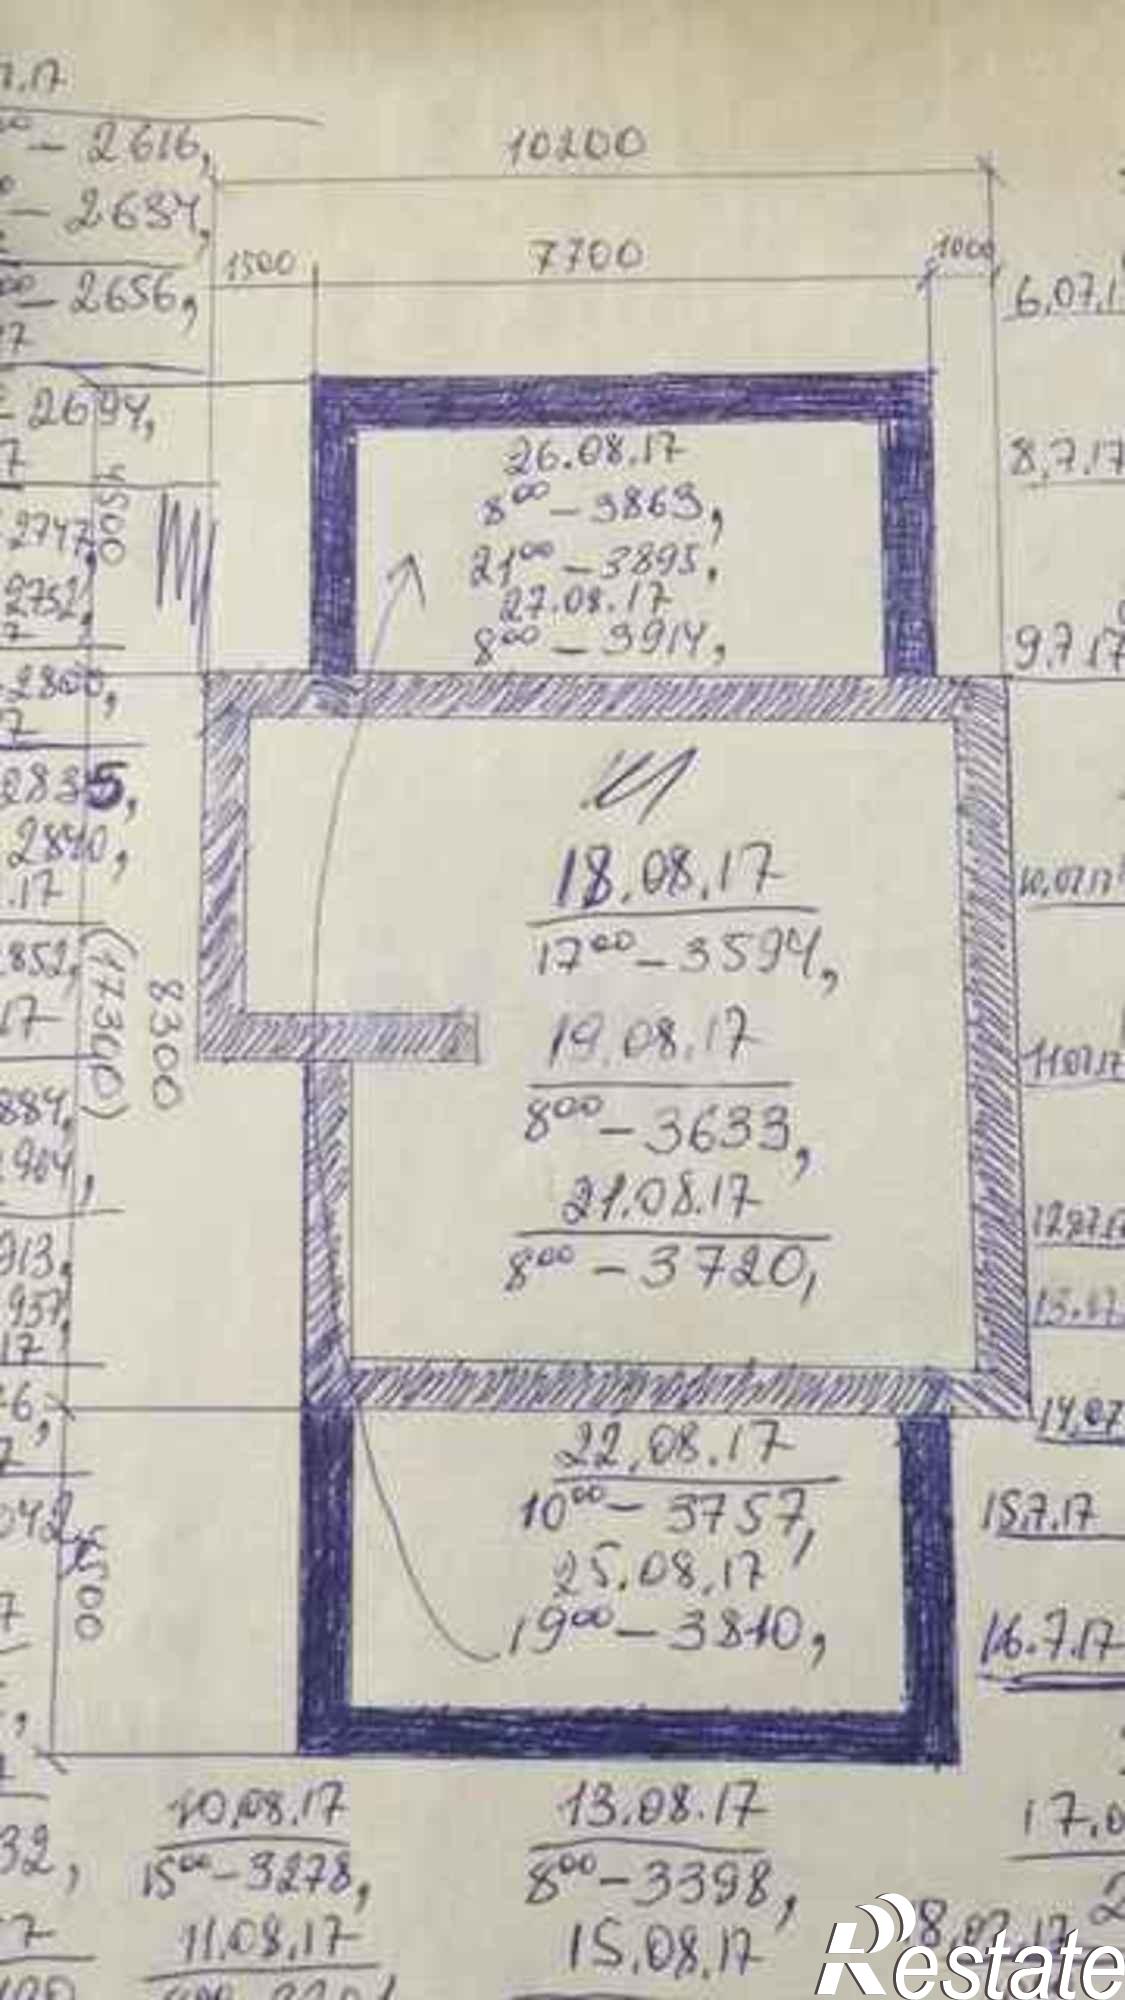 7.17
– 2616,
10200
– 2634,
1500
7700
1000
– 2656,
17
6,07,1
– 2694,
7
4500
26.08.17
8⁰⁰ – 3863,
8,7.17
2747,
21⁰⁰ – 3895,
2752,
27.08.17
8⁰⁰ – 3914,
9.7.17
2800,
7
2835,
2840,
.17
18.08.17
17⁰⁰ – 3594,
10.07.17
852,
17
(17300)
8300
19.08.17
8⁰⁰ – 3633,
11.07.17
884,
904,
21.08.17
8⁰⁰ – 3720,
12.07.17
913,
957,
17
13.07
6,
14.07
22.08.17
10⁰⁰ – 3757,
25.08.17
19⁰⁰ – 3810,
042,
4500
15.7.17
7
16.7.17
10.08.17
15⁰⁰ – 3278,
11.08.17
13.08.17
8⁰⁰ – 3398,
15.08.17
17.0
32,
18.07.17
7
Restate